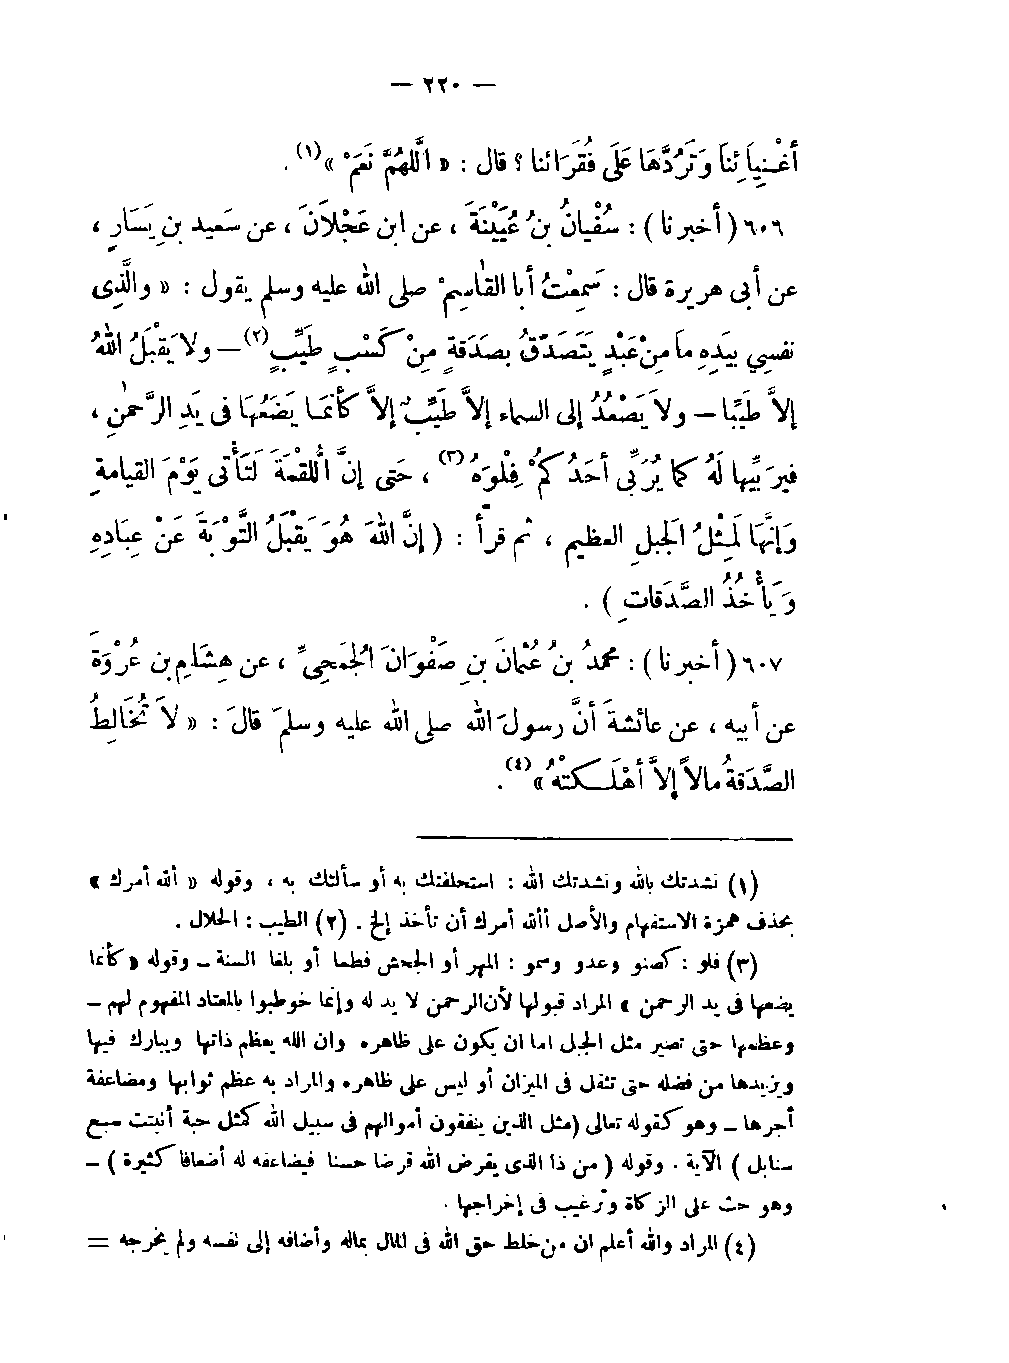 — ٢٢٠ —
أَغْنِيَائِنَا وَتَرُدَّهَا عَلَى فُقَرَائنا ؟ قال : « اللَّهُمَّ نَعَمْ »(١) .
٦٠٦ ( أخبرنا ) : سُفْيانُ بنُ عُيَيْنَةَ ، عن ابن عَجْلَانَ ، عن سَعيد بنِ يَسَارٍ ،
عن أبى هريرة قال : سَمِعْتُ أبا القاسِمْ صلى الله عليه وسلم يقول : « والَّذِى
نفسِي بِيَدِهِ مَا مِنْ عَبْدٍ يَتَصَدَّقُ بِصَدَقَةٍ مِنْ كَسْبٍ طَيِّبٍ(٢) – ولا يَقْبَلُ اللهُ
إلاَّ طَيِّبًا – ولاَ يَصْعَدُ إلى السماء إلاَّ طَيِّبٌ إلاَّ كأَنَّمَا يَضَعُهَا فى يَدِ الرَّحمٰنِ ،
فيرَبِّيها لَهُ كما يُرَبِّى أحَدُ كُمْ فِلْوَهُ(٣) ، حَتى إنَّ اللُّقْمَةَ لَتَأْتى يَوْمَ القيامةِ
وَإِنَّهَا لَمِثْلُ الجَبلِ العظيم ، ثم قرأ : ( إنَّ اللهَ هُوَ يَقْبَلُ التَّوْبَةَ عَنْ عِبَادِهِ
وَيَأْخُذُ الصَّدَقاتِ ) .
٦٠٧ ( أخبرنا ) : محمدُ بنُ عُثْمَانَ بنِ صَفْوَانَ الجُمَحِىُّ ، عن هِشَامِ بن عُرْوَةَ
عن أبيه ، عن عائشةَ أنَّ رسولَ الله صلى الله عليه وسلمَ قالَ : « لاَ تُخَالِطُ
الصَّدَقةُ مالاً إلاَّ أهْلَكتْهُ »(٤) .
(١) نشدتك بالله ونشدتك الله : استحلفتك به أو سألتك به ، وقوله « ألله أمرك »
بحذف همزة الاستفهام والأصل أألله أمرك أن تأخذ إلخ . (٢) الطيب : الحلال .
(٣) فلو : كصنو وعدو وسمو : المهر أو الجحش فطما أو بلغا السنة – وقوله « كأنما
يضعها فى يد الرحمن » المراد قبولها لأن الرحمن لا يد له وإنما خوطبوا بالمعتاد المفهوم لهم –
وعظمها حتى تصير مثل الجبل اما ان يكون على ظاهره وان الله يعظم ذاتها ويبارك فيها
ويزيدها من فضله حتى تثقل فى الميزان أو ليس على ظاهره والمراد به عظم ثوابها ومضاعفة
أجرها – وهو كقوله تعالى (مثل الذين ينفقون أموالهم فى سبيل الله كمثل حبة أنبتت سبع
سنابل ) الآية . وقوله ( من ذا الذى يقرض الله قرضا حسنا فيضاعفه له أضعافا كثيرة ) –
وهو حث على الزكاة وترغيب فى إخراجها .
(٤) المراد والله أعلم ان من خلط حق الله فى المال بماله وأضافه إلى نفسه ولم يخرجه =